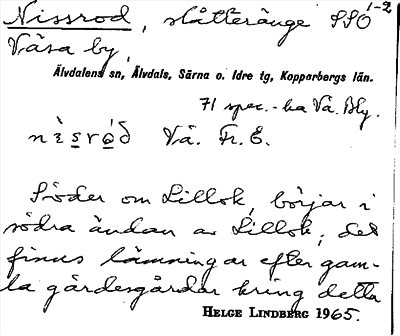 Nissrod, slåtteränge SSO 1-2
Våsa by,
Älvdalens sn, Älvdals, Särna o. Idre tg, Kopparbergs län.
71 spec.-ka Vå. Bly.
nìsród Vå. Fr. E.
Söder om Lillok, börjar i
södra ändan av Lillok; det
finns lämningar efter gam-
la gärdesgårdar kring detta
HELGE LINDBERG 1965.